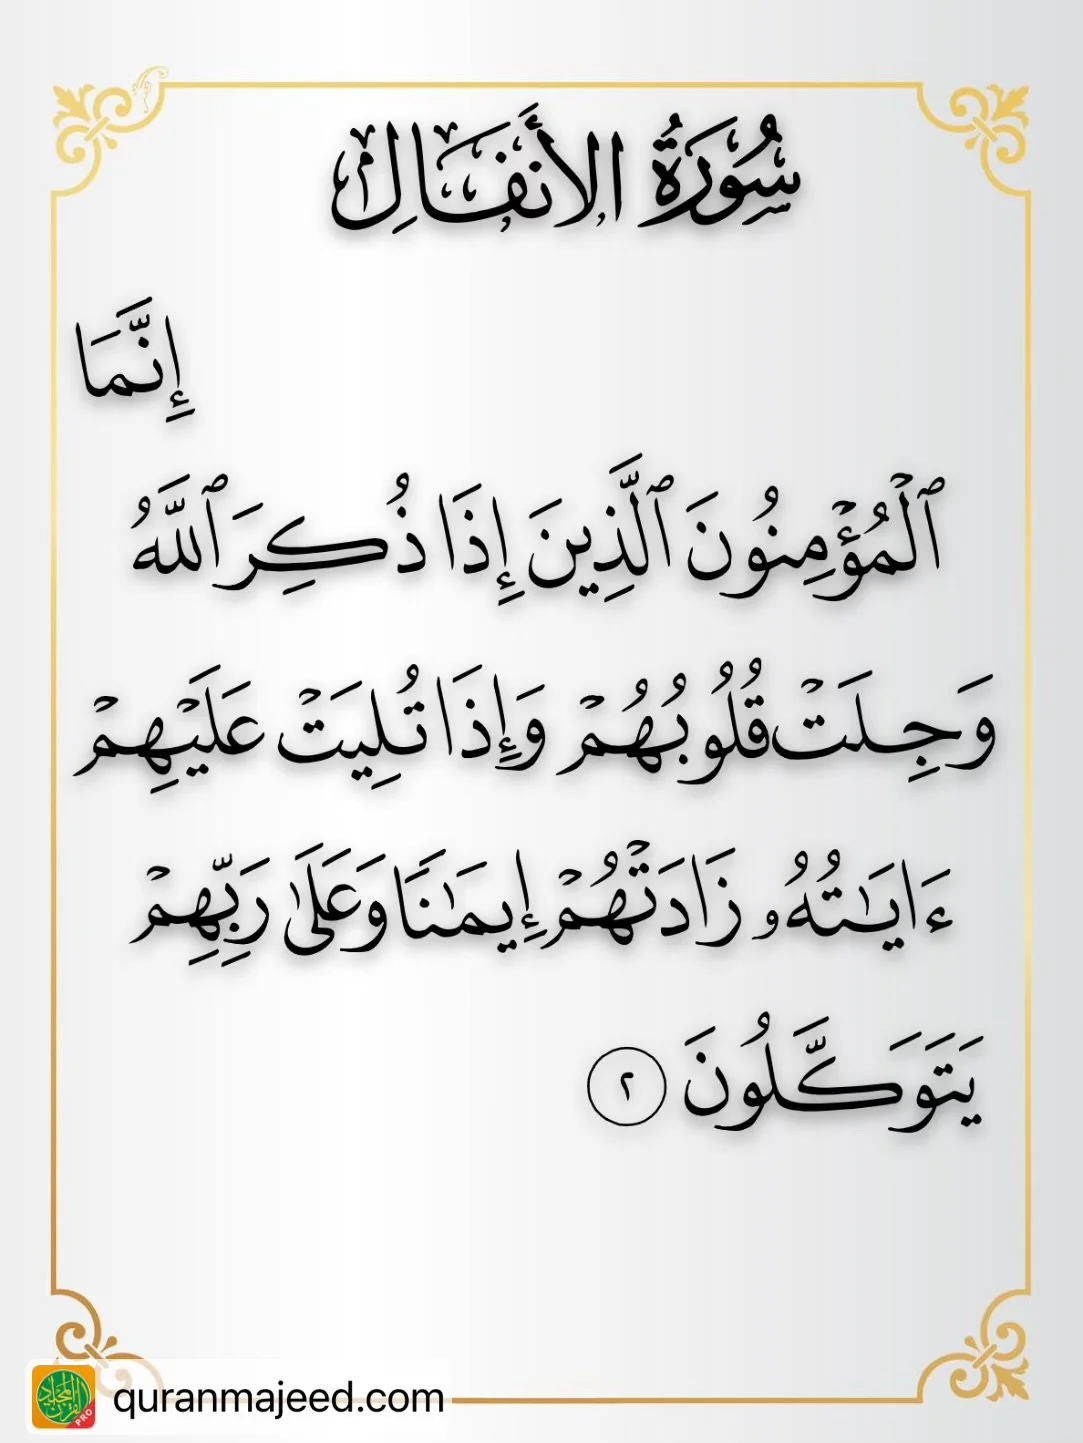 سُورَةُ الأَنفَالِ
إِنَّمَا
ٱلْمُؤْمِنُونَ ٱلَّذِينَ إِذَا ذُكِرَ ٱللَّهُ
وَجِلَتْ قُلُوبُهُمْ وَإِذَا تُلِيَتْ عَلَيْهِمْ
ءَايَـٰتُهُۥ زَادَتْهُمْ إِيمَـٰنًا وَعَلَىٰ رَبِّهِمْ
يَتَوَكَّلُونَ ٢
القرآن المجيد
PRO
quranmajeed.com